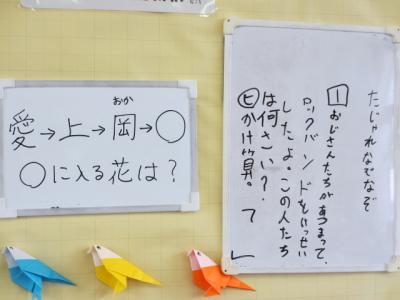 おか
愛→上→岡→○
○に入る花は？
たじゃれなぞなぞ
1 おじさんたちがあつまって、
ロックバンドをけっせい
したよ。この人たち
は何さい？
ヒかけ算。